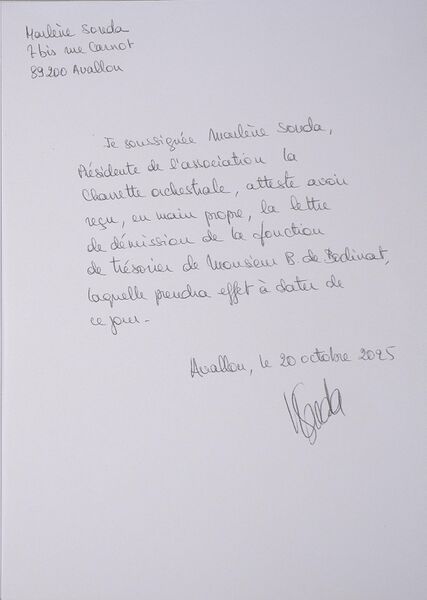 Marlène Souda
7 bis rue Carnot
89200 Avallon
Je soussignée Marlène Souda,
Présidente de l'association la
Charrette orchestrale, atteste avoir
reçu, en main propre, la lettre
de démission de la fonction
de trésorier de Monsieur B. de
laquelle prendra effet à dater de
ce jour.
Avallon, le 20 octobre 2025